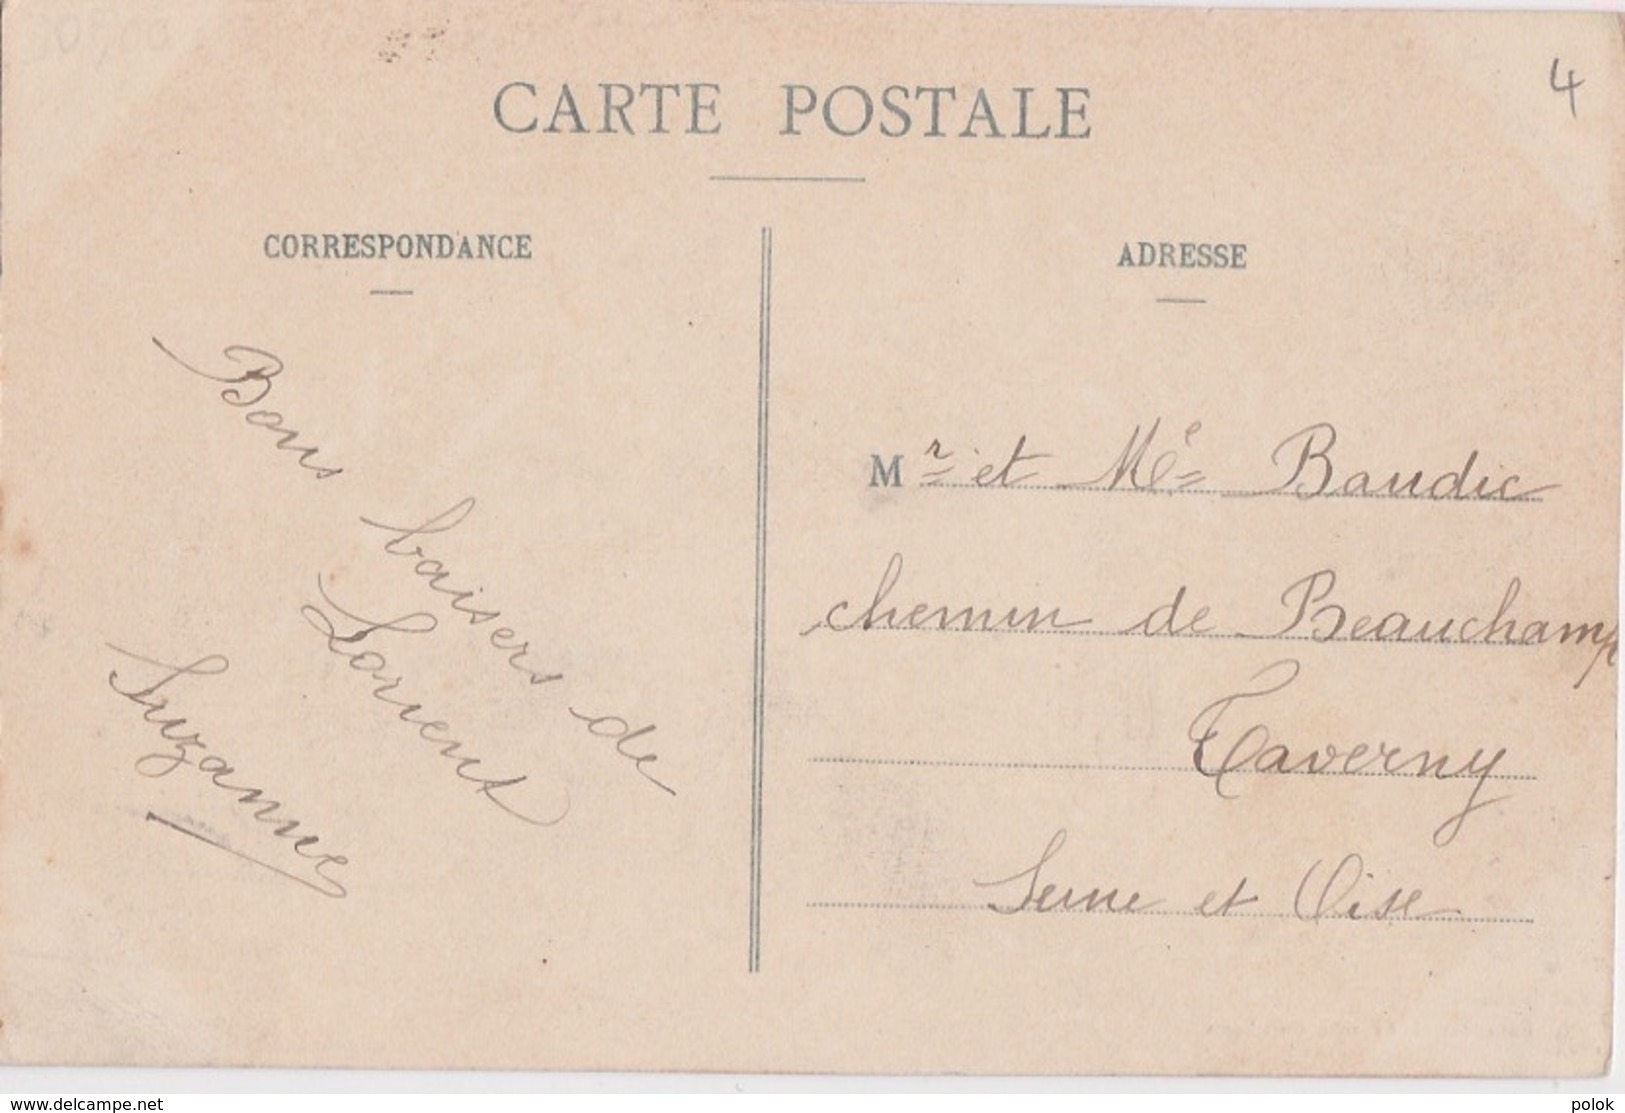 4
CARTE POSTALE
CORRESPONDANCE
ADRESSE
Bons baisers de
Lorient
Suzanne
Mr et Me Baudic
chemin de Beauchamp
Taverny
Seine et Oise
www.delcampe.net
polok